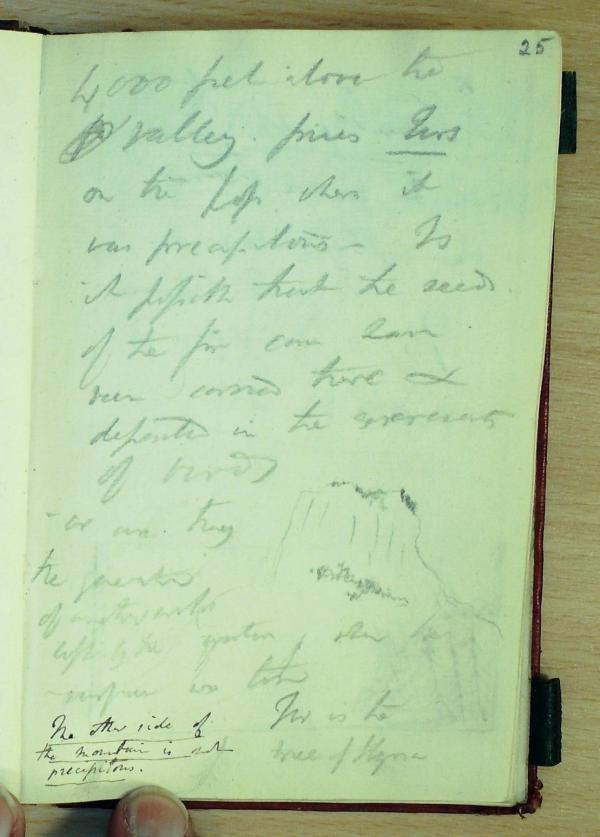 25
4000 feet above the
valley. pines Firs
on the top where it
was precipitous - Is
it possible that the seeds
of the fir can have
been carried there &
deposited in the excrements
of birds
- or are they
the
of
left by the when the
surface was
The other side of
the mountain is not
precipitous.
Fir is the
tree of